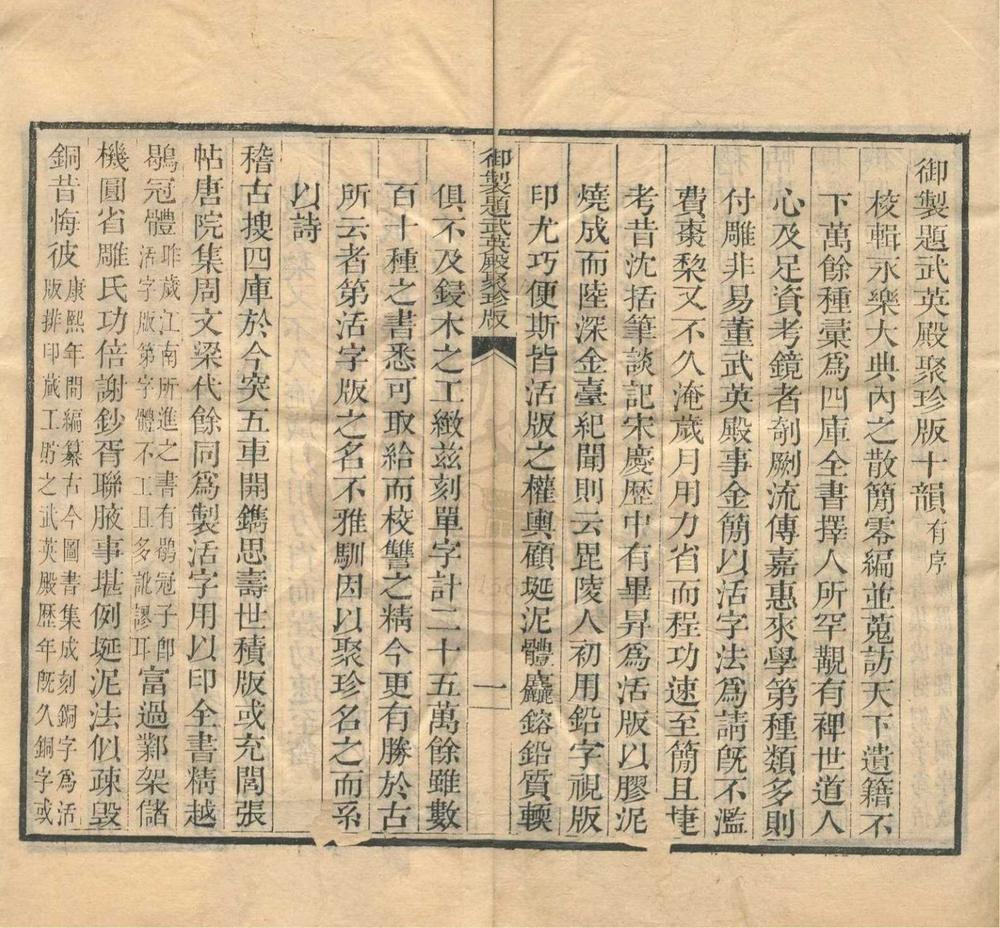 御製題武英殿聚珍版十韻有序
校輯永樂大典內之散簡零編並蒐訪天下遺籍不
下萬餘種彙爲四庫全書擇人所罕覯有裨世道人
心及足資考鏡者剞劂流傳嘉惠來學第種類多則
付雕非易董武英殿事金簡以活字法爲請旣不濫
費棗梨又不久淹歲月用力省而程功速至簡且捷
考昔沈括筆談記宋慶歷中有畢昇爲活版以膠泥
燒成而陸深金臺紀聞則云毘陵人初用鉛字視版
印尤巧便斯皆活版之權輿顧埏泥體麤鎔鉛質輭
御製題武英殿聚珍版
一
俱不及鋟木之工緻兹刻單字計二十五萬餘雖數
百十種之書悉可取給而校讐之精今更有勝於古
所云者第活字版之名不雅馴因以聚珍名之而系
以詩
稽古搜四庫於今突五車開鐫思壽世積版或充閭張
帖唐院集周文梁代餘同爲製活字用以印全書精越
鶡冠體昨歲江南所進之書有鶡冠子卽活字版第字體不工且多訛謬耳富過鄴架儲
機圓省雕氏功倍謝鈔胥聯腋事堪例埏泥法似疎毀
銅昔悔彼康熙年間編纂古今圖書集成刻銅字爲活版排印蕆工貯之武英殿歷年旣久銅字或